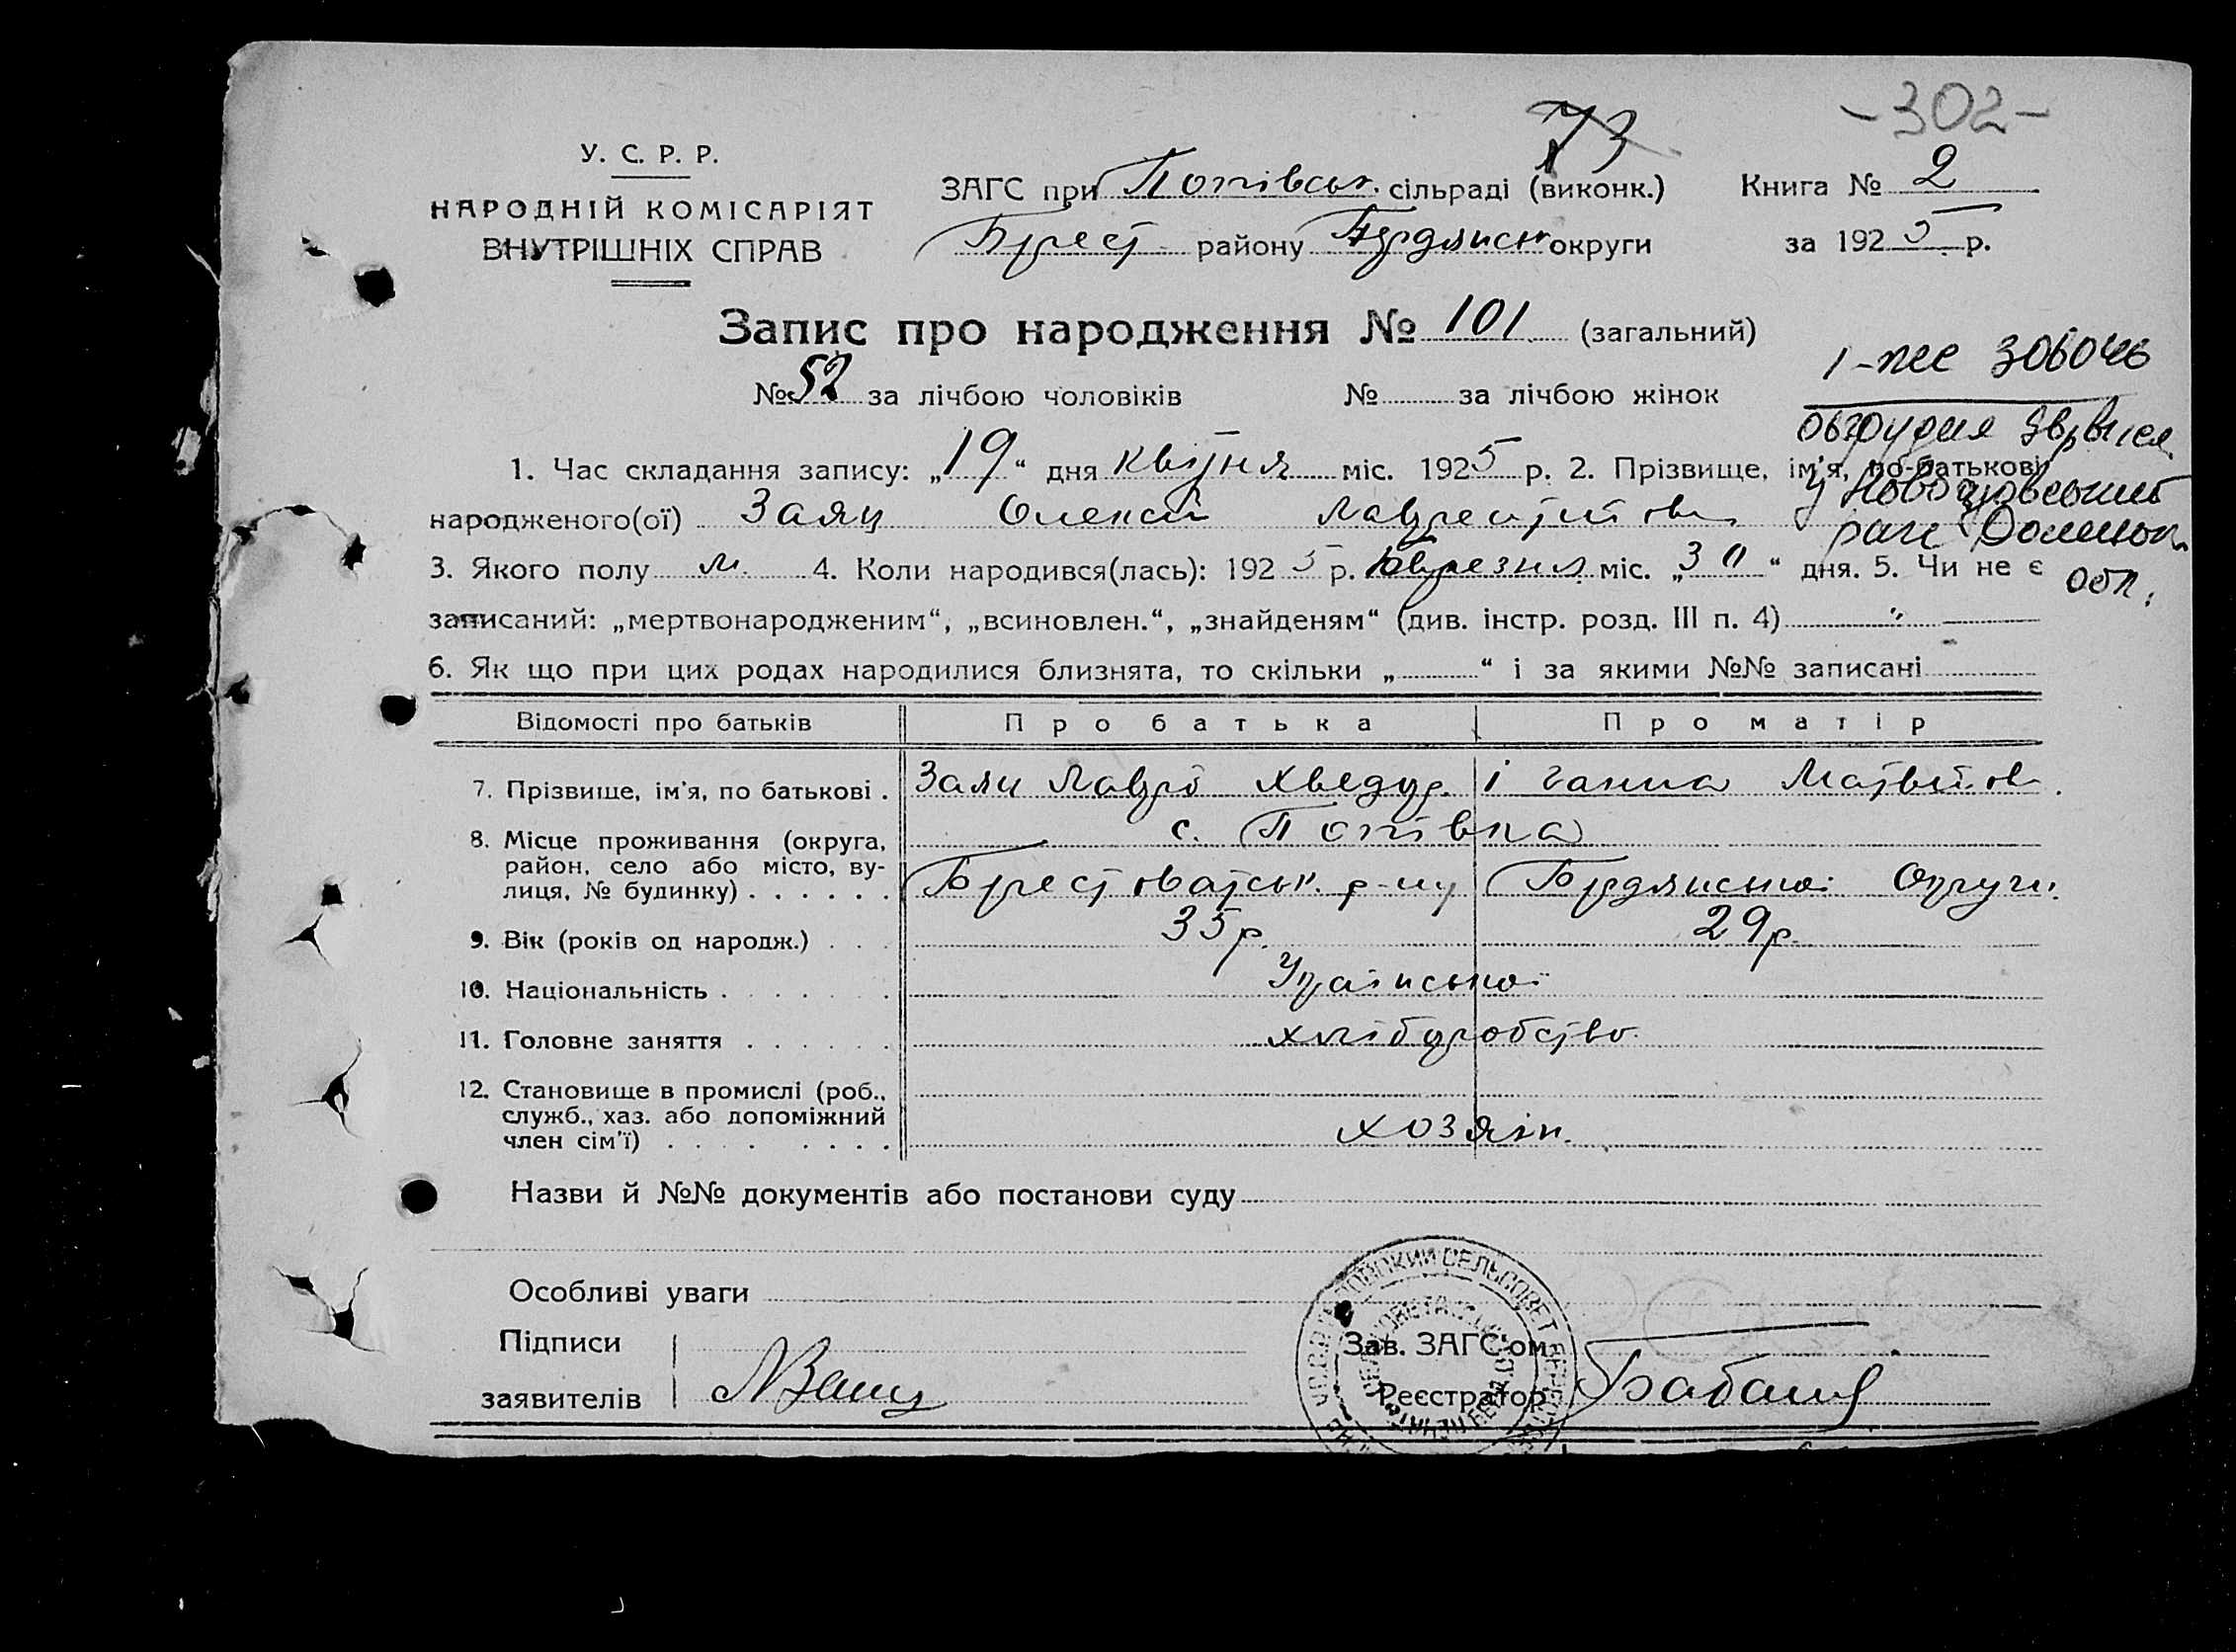 -302-
73
У. С. Р. Р.
НАРОДНІЙ КОМІСАРІЯТ
ВНУТРІШНІХ СПРАВ
ЗАГС при Попівськ. сільраді (виконк.) Книга № 2
Брест району Бердянськ округи за 1925 р.
Запис про народження № 101 (загальний)
№ 52 за лічбою чоловіків № за лічбою жінок
1. Час складання запису: „19“ дня квітня міс. 1925 р. 2. Прізвище, ім'я, по-батькові
народженого(ої) Заяц Олексій Лаврентійов
3. Якого полу м. 4. Коли народився(лась): 1925 р. березня міс. „30“ дня. 5. Чи не є
обл.
записаний: „мертвонародженим“, „всиновлен.“, „знайденям“ (див. інстр. розд. III п. 4) "
6. Як що при цих родах народилися близнята, то скільки „ “ і за якими №№ записані
Відомості про батьків Про батька Про матір
7. Прізвище, ім'я, по батькові . Заяц Лавро Хведор. і Ганна Матвійов.
8. Місце проживання (округа, район, село або місто, вулиця, № будинку) . . . . . . с. Попівка
Берестоватськ. р-ну Бердянської Округи.
9. Вік (років од народж.) . . . 35 р. 29 р.
10. Національність . . . . . . . Української
11. Головне заняття . . . . . . хліборобство.
12. Становище в промислі (роб., служб., хаз. або допоміжний член сім'ї) . . . . . . . . . хозяін.
Назви й №№ документів або постанови суду
Особливі уваги
Підписи
заявителів
Зав. ЗАГС'ом
Реєстратор
СЕЛЬСОВЕТ